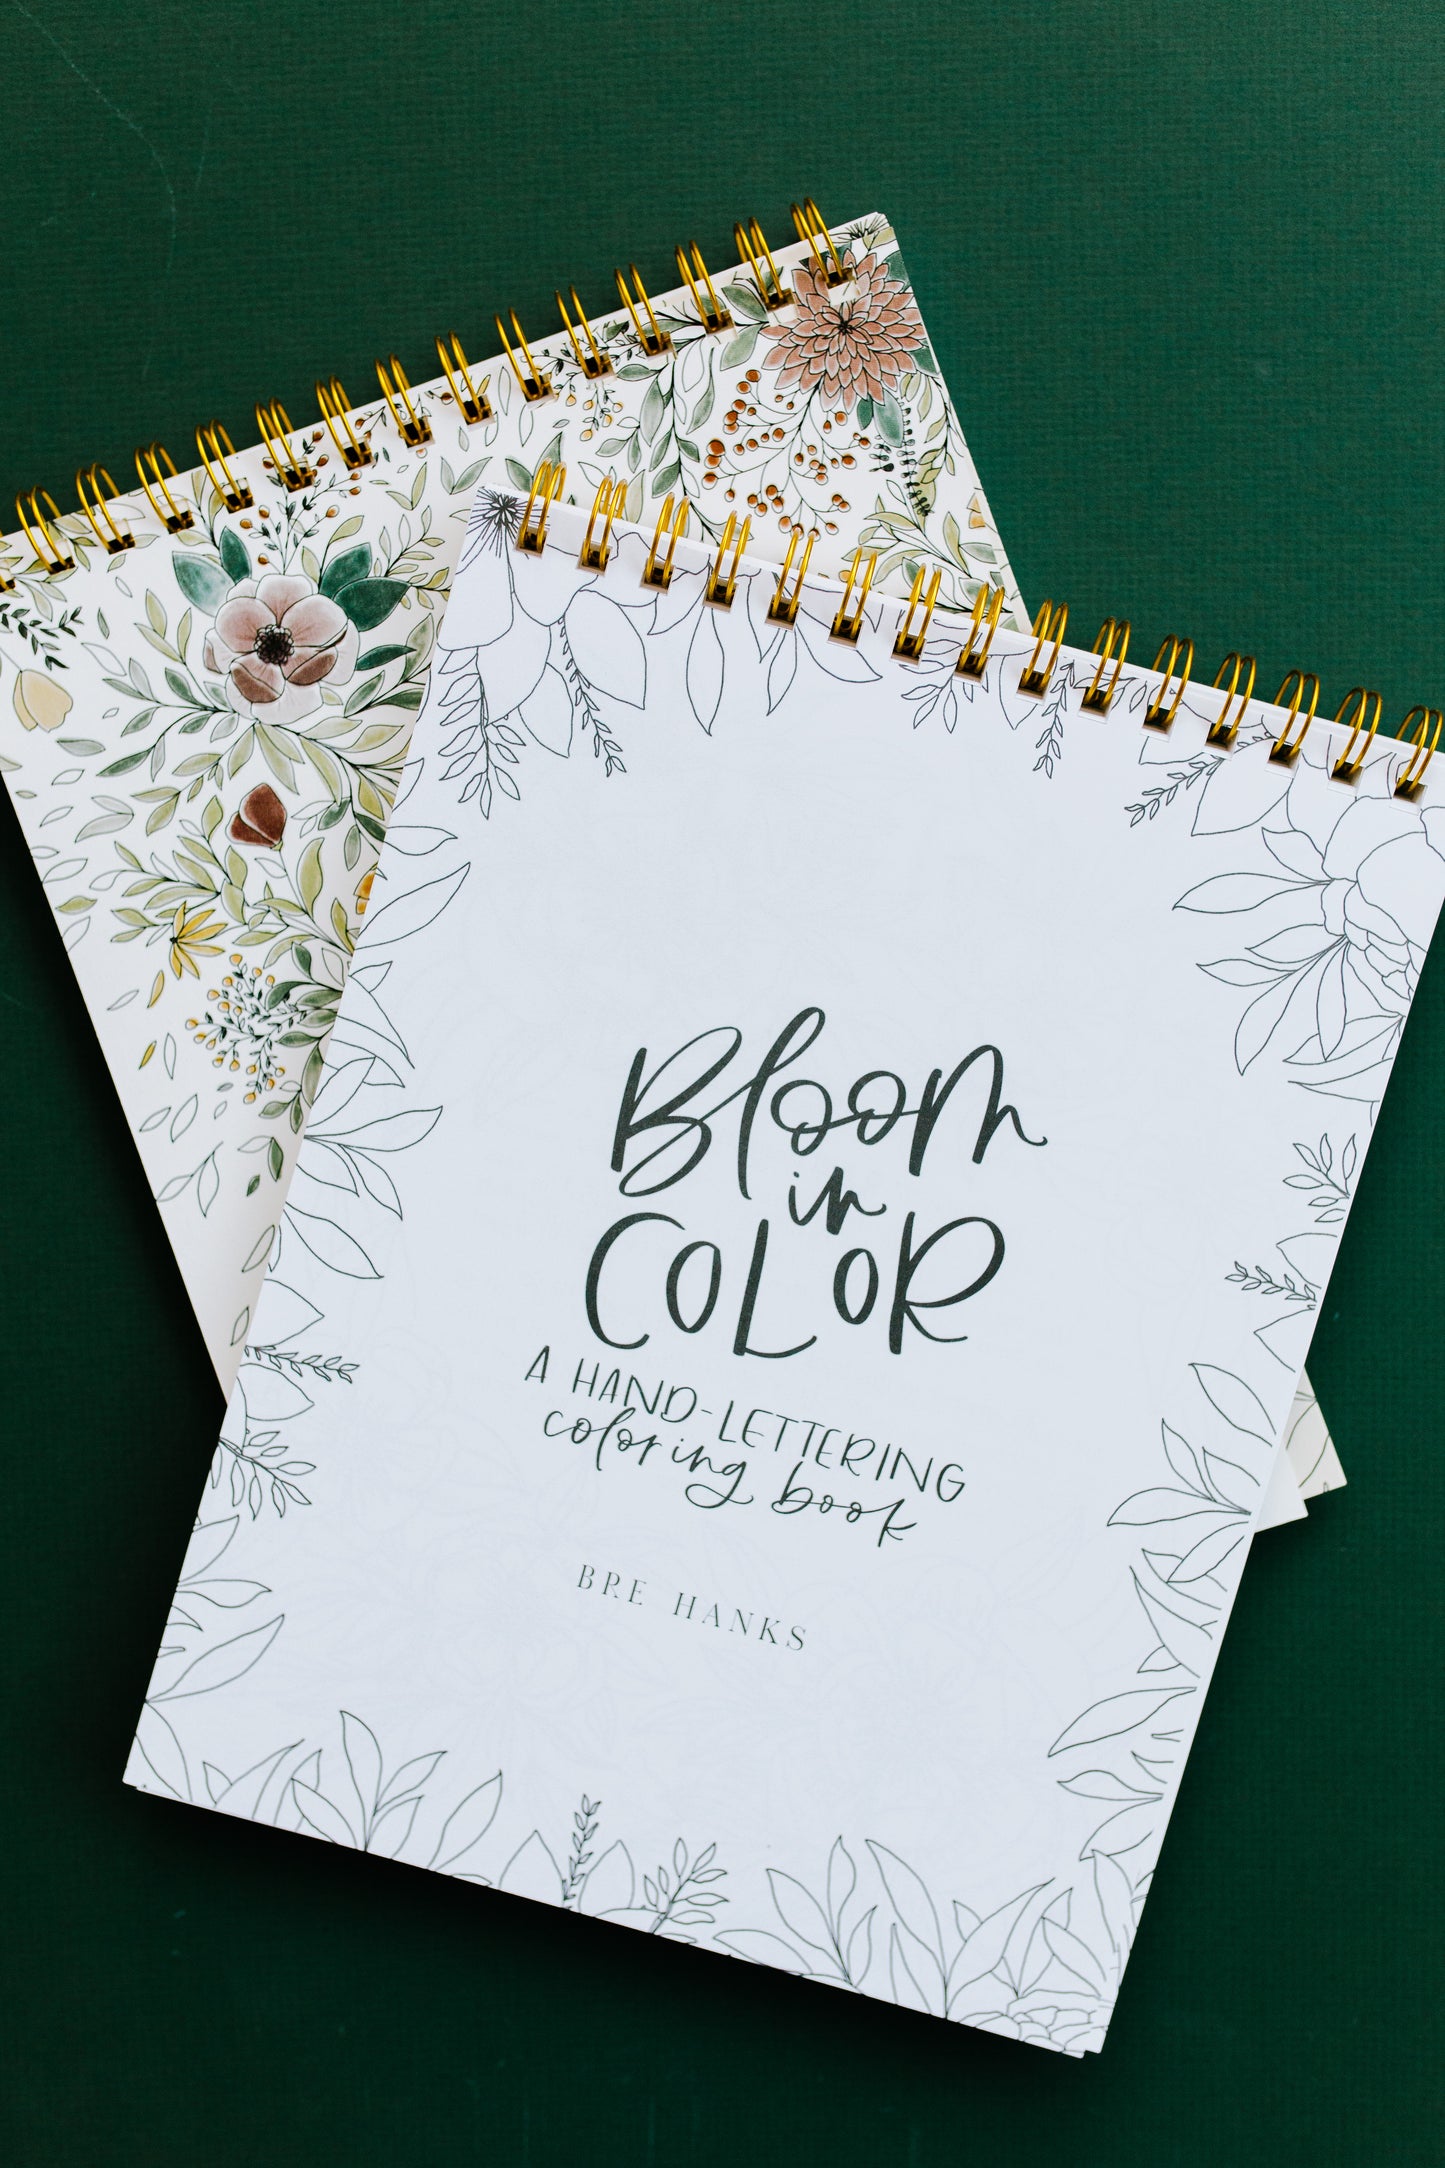 Bloom
in
COLOR
A HAND-LETTERING
coloring book
BRE HANKS